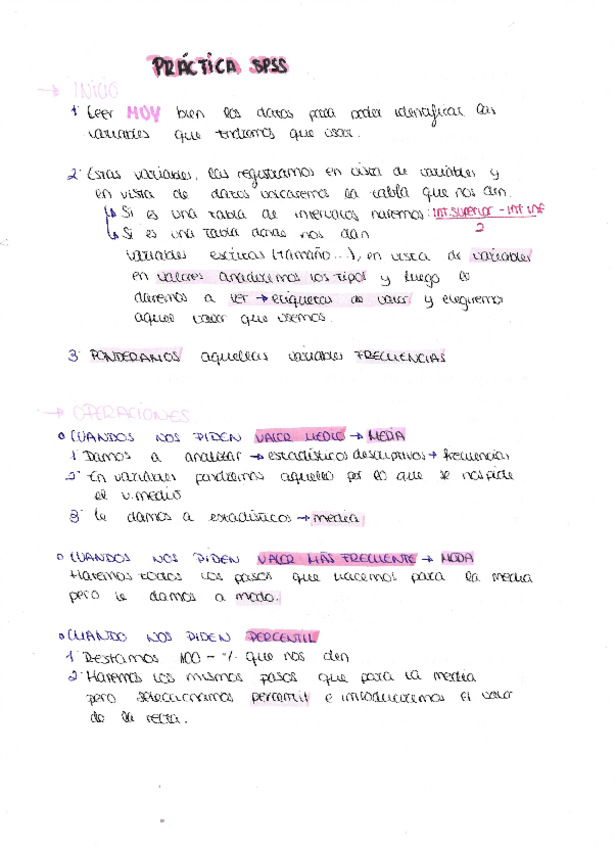 PRÁCTICA SPSS
→ INICIO
1· Leer MUY bien los datos para poder identificar las
variables que tendremos que usar.
2· Estas variables, las registramos en vista de variables y
en vista de datos volcaremos la tabla que nos den.
↳ Si es una tabla de intervalos haremos: int.superior - int inf
2
↳ Si es una tabla donde nos dan
variables escritas (tamaño...), en vista de variables
en valores añadiremos los tipos y luego le
daremos a ver → etiquetas de valor y elegiremos
aquel valor que usemos.
3· PONDERAMOS aquellas variables FRECUENCIAS
→ OPERACIONES
o CUANDOS NOS PIDEN VALOR MEDIO → MEDIA
1· Damos a analizar → estadísticos descriptivos → frecuencias
2· En variables pondremos aquello por lo que se nos pide
el v.medio
3· Le damos a estadísticos → media
o CUANDOS NOS PIDEN VALOR MÁS FRECUENTE → MODA
Haremos todos los pasos que hacemos para la media
pero le damos a modo.
o CUANDO NOS PIDEN PERCENTIL
1· Restamos 100 - % que nos den
2· Haremos los mismos pasos que para la media
pero seleccionamos percentil e introduciremos el valor
de la resta.